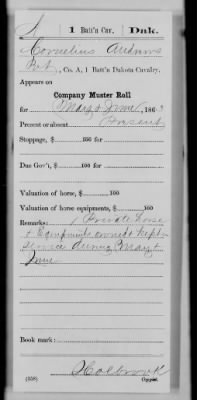 A | 1 Batt'n Cav. | Dak.
Cornelius Andrews
Pvt., Co. A, 1 Batt'n Dakota Cavalry.
Appears on
Company Muster Roll
for May & June, 186
Present or absent Present
Stoppage, $ 100 for
Due Gov't, $ 100 for
Valuation of horse, $ 100
Valuation of horse equipments, $ 100
Remarks: 1 Private horse
& Equipments owned & kept in
service during May &
June
Book mark:
Holbrook
(358) Copyist.